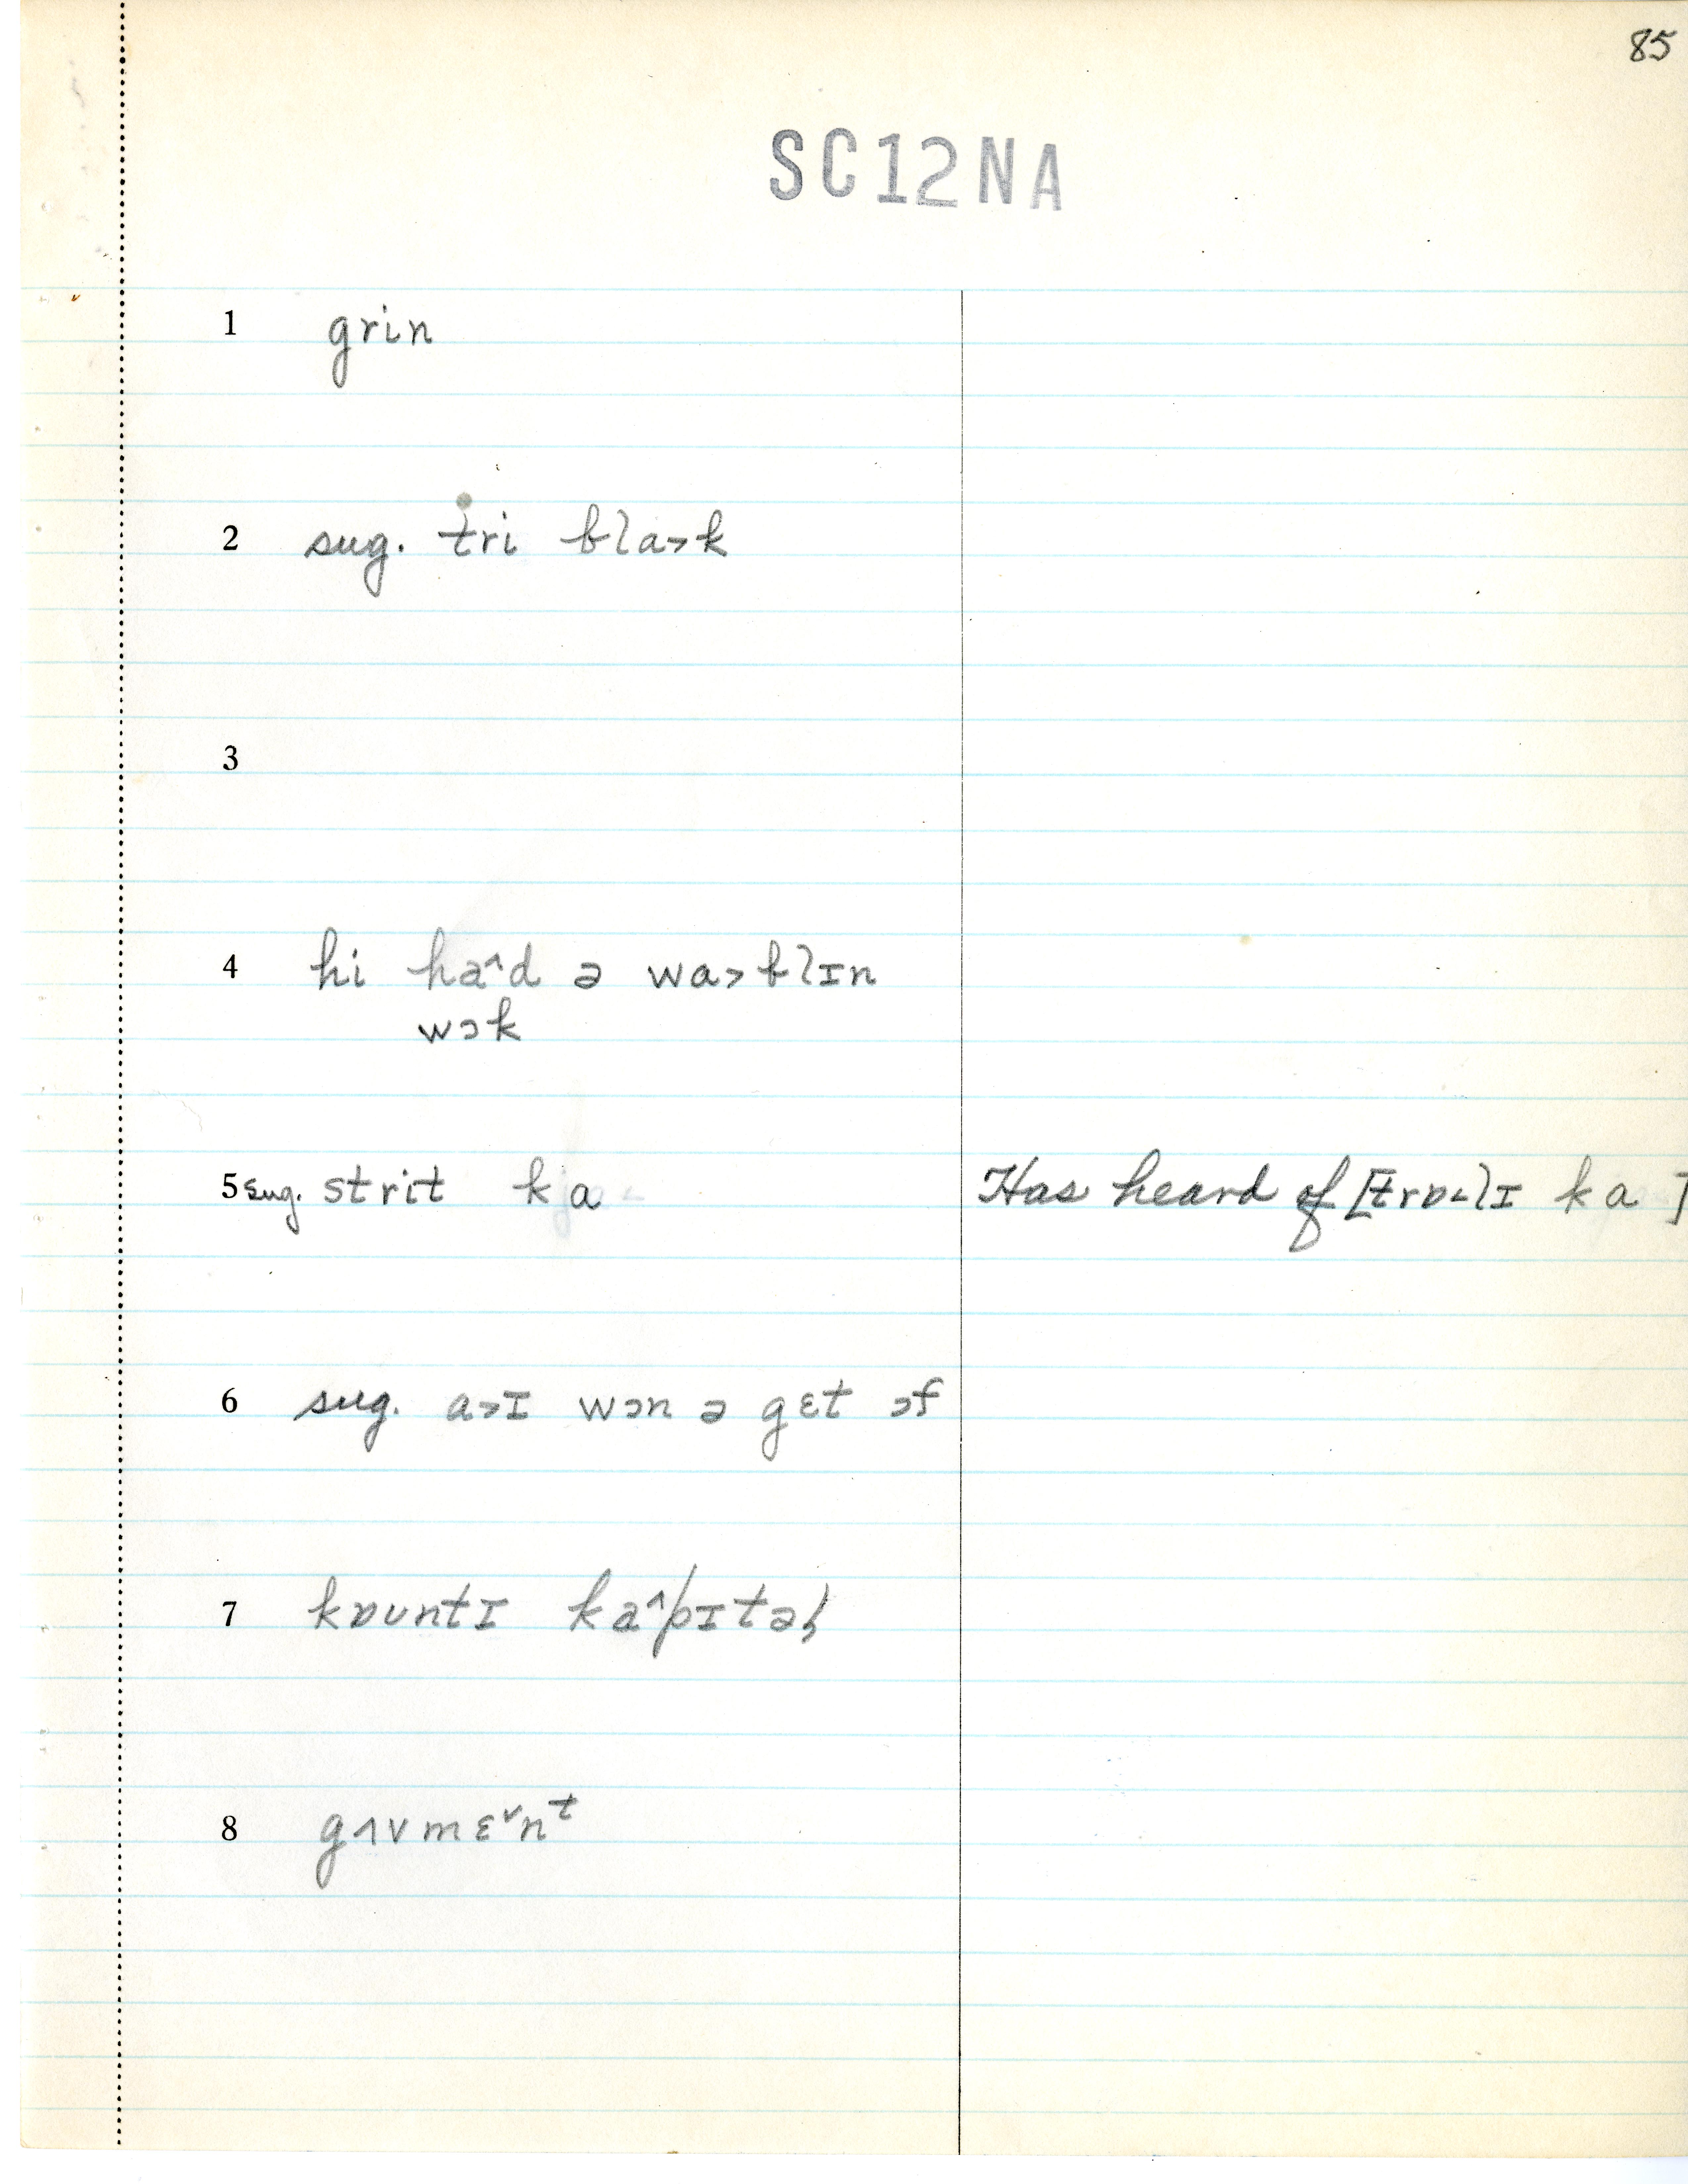 85
SC12NA
1 grin
2 sug. tri bla˃k
3
4 hi ha^d ə wa˃blɪn
wɔk
5 sug. strit ka Has heard of [trɒ˂lɪ ka ]
6 sug. a˃ɪ wɔn ə gɛt ɔf
7 kɒʊntɪ ka^pɪtəl
8 gʌvmɛˇnᵗ